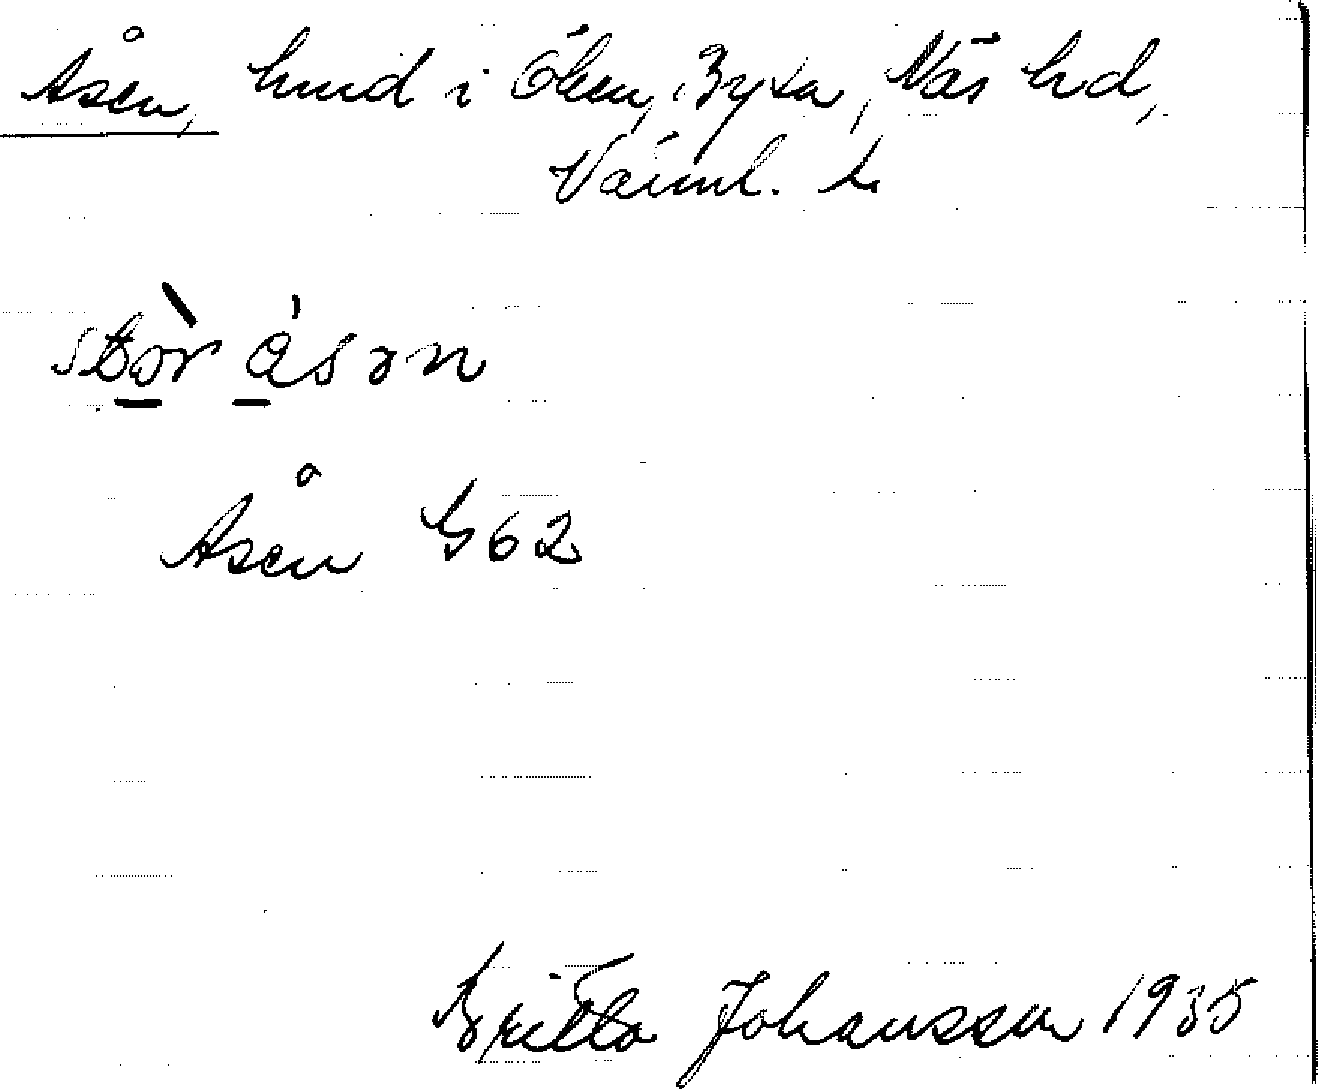 Åsen, hmd i Ölsen, By sn, Näs hd,
Värml. l.
stòr ásən
Åsen G62
Britta Johansson 1935